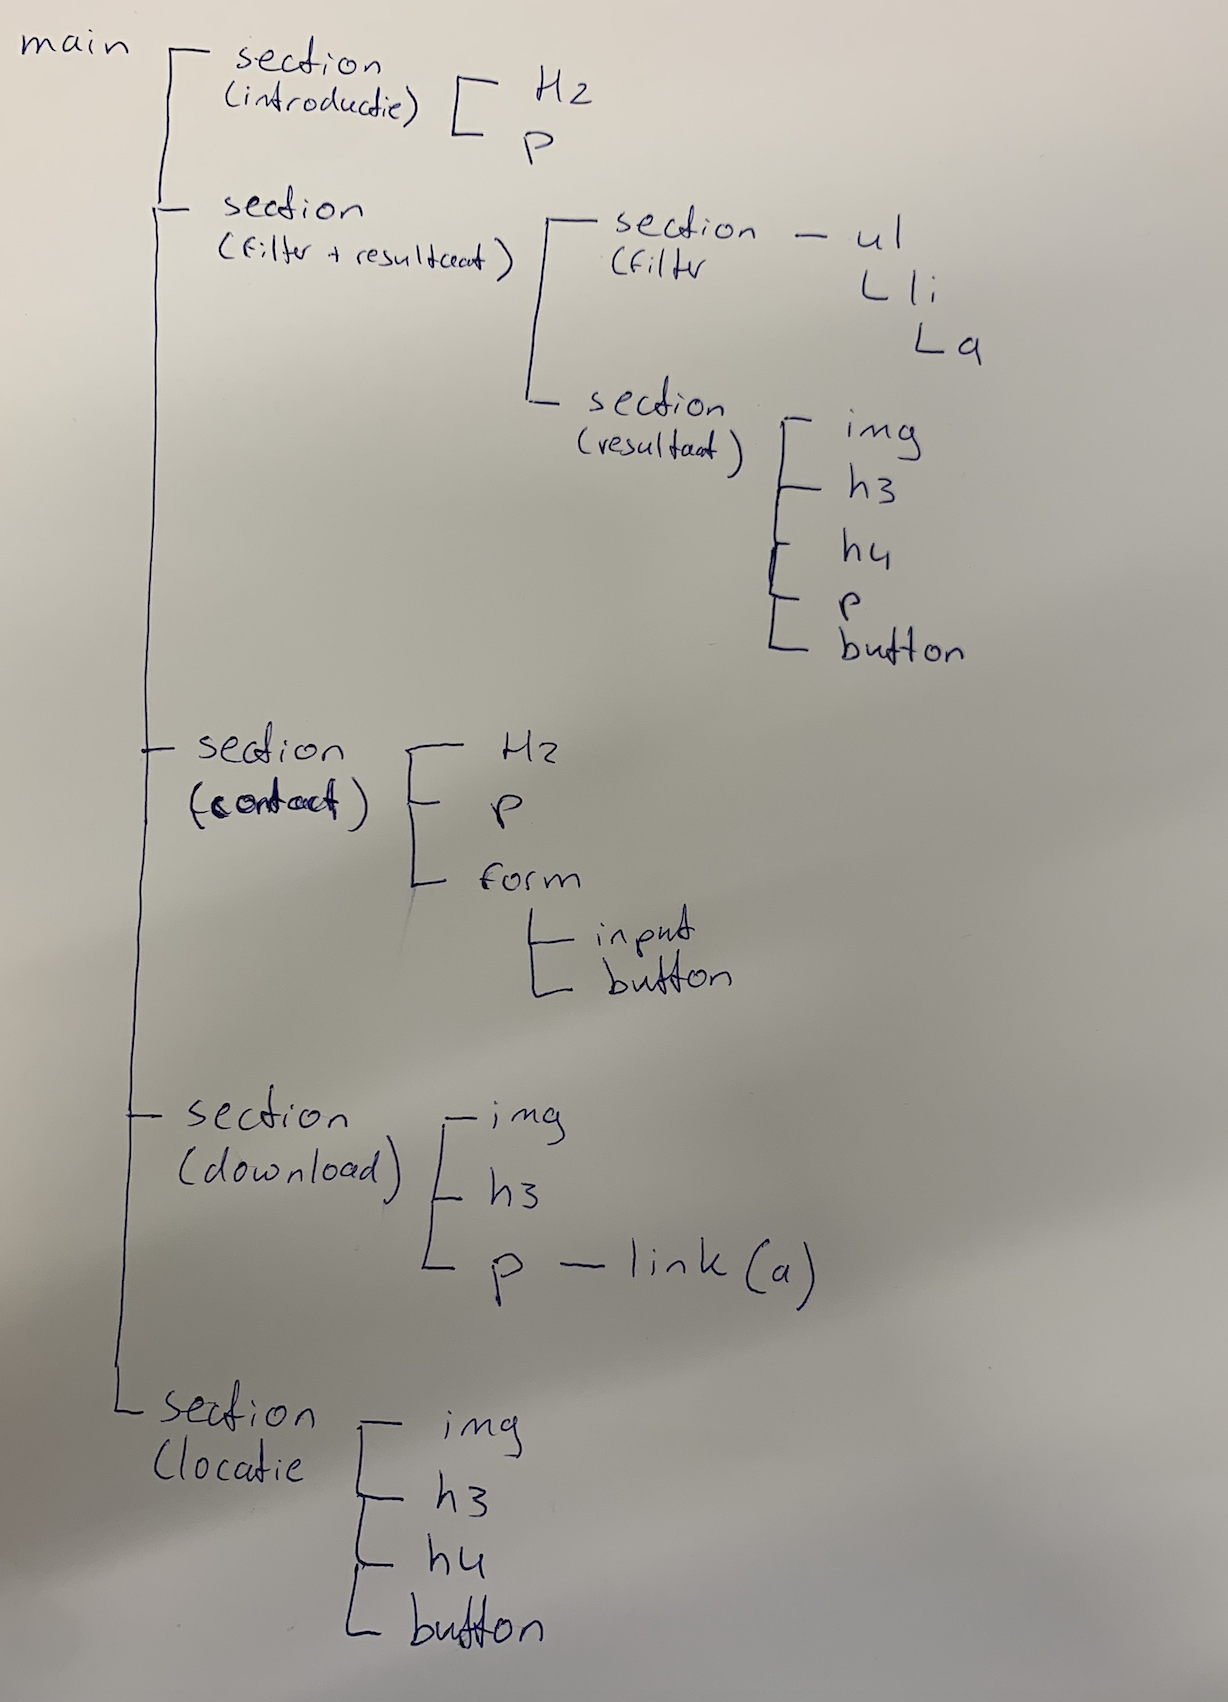 main
section
(introductie)
H2
p
section
(filter + resultaat)
section - ul
(filter
li
a
section
(resultaat)
img
h3
h4
p
button
section
(contact)
H2
p
form
input
button
section
(download)
img
h3
p - link (a)
section
(locatie
img
h3
h4
button